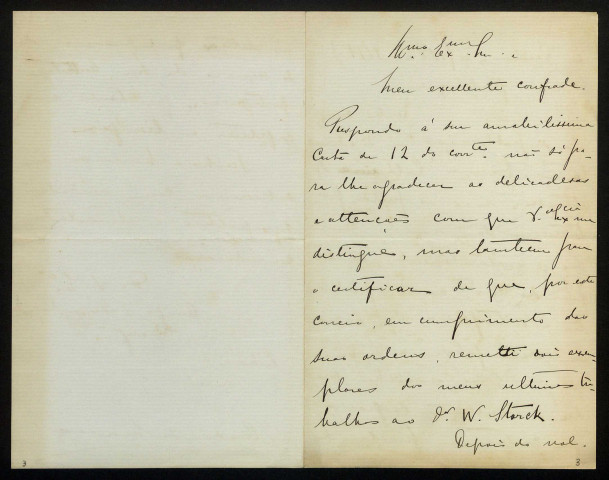 Illmo. Exmo. Snr.
Meu excellente confrade.
Respondo á sua amabilissima
Carta de 12 do corrte. não só pa-
ra lhe agradecer as delicadesas
e attenções com que V. Excia me
distingue, mas tambem para
o certificar de que, por este
Correio, em cumprimento das
suas ordens, remetto dois exem-
plares dos meus ultimos tra-
balhos ao Dr. W. Storck.
Depois do vol.
3
3